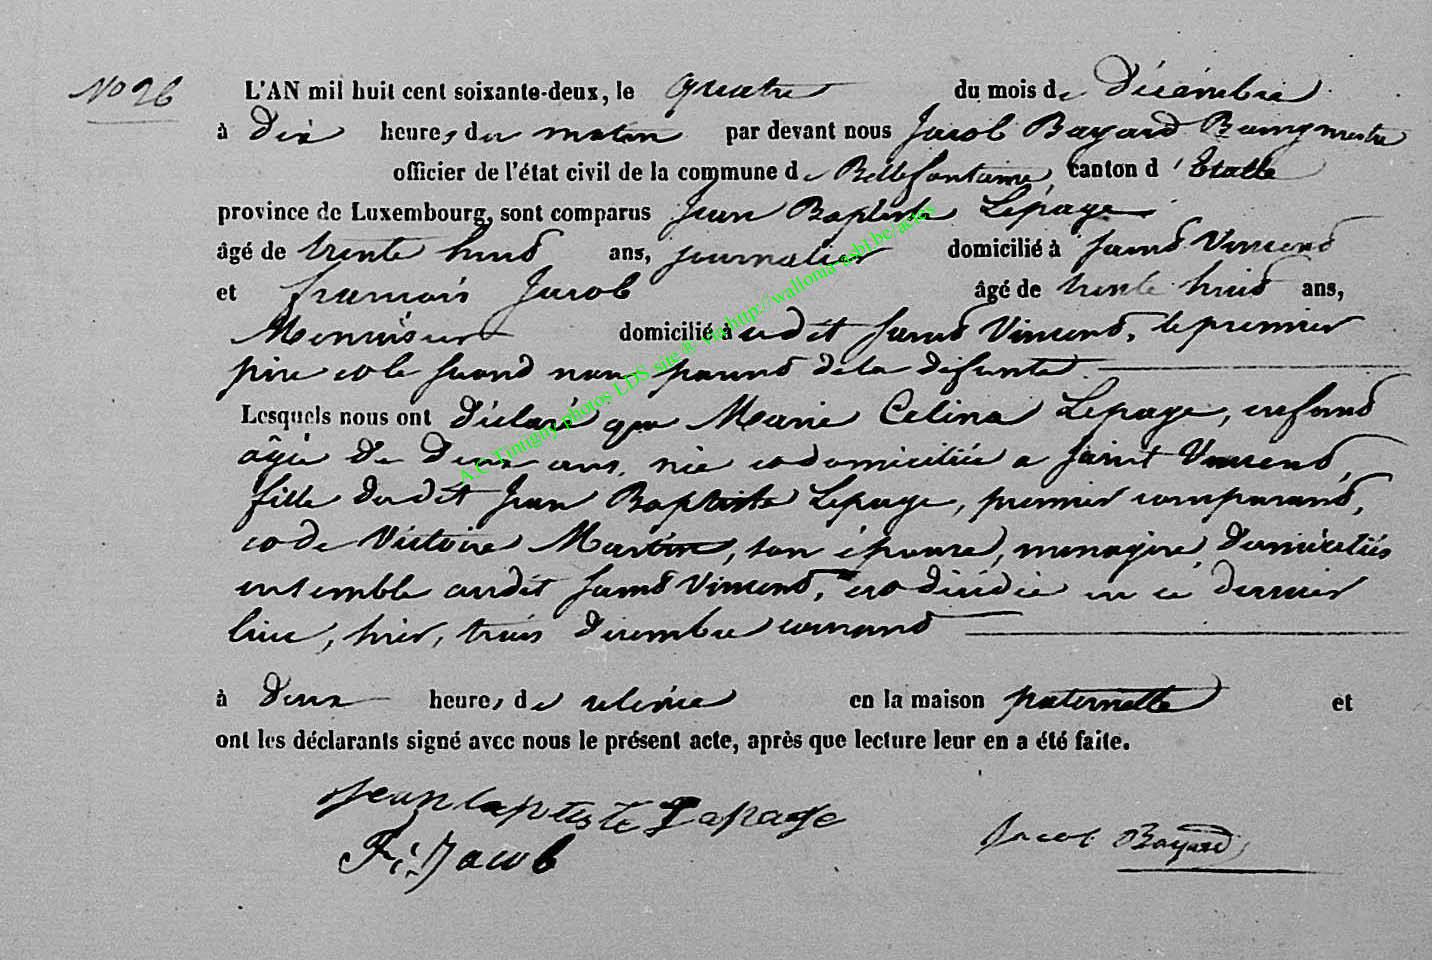 N° 26
L'AN mil huit cent soixante-deux, le quatre du mois de Décembre
à Dix heures du matin par devant nous Jacob Bayard Bourgmestre
officier de l'état civil de la commune de Bellefontaine, canton d'Etalle
province de Luxembourg, sont comparus Jean Baptiste Lepage
âgé de trente huit ans, journalier domicilié à Saint Vincent
et francois Jacob âgé de trente huit ans,
Menuisier domicilié à udit Saint Vincent, le premier
père et le second non parent de la defunte
Lesquels nous ont déclaré que Marie Celina Lepage, enfant
agée de Deux ans, née et domiciliée a Saint Vincent,
fille dudit Jean Baptiste Lepage, premier comparant,
et de Victoire Martin, son épouse, menagère Domiciliés
ensemble audit Saint Vincent, est décédée en ce dernier
lieu, hier, trois Decembre courant
à Deux heures de relevée en la maison paternelle et
ont les déclarants signé avec nous le présent acte, après que lecture leur en a été faite.
Jean baptiste Lepage
F. Jacob
Jacob Bayard
A.C Tintigny photos LDS site & via http://wallonia-asbl.be/actes